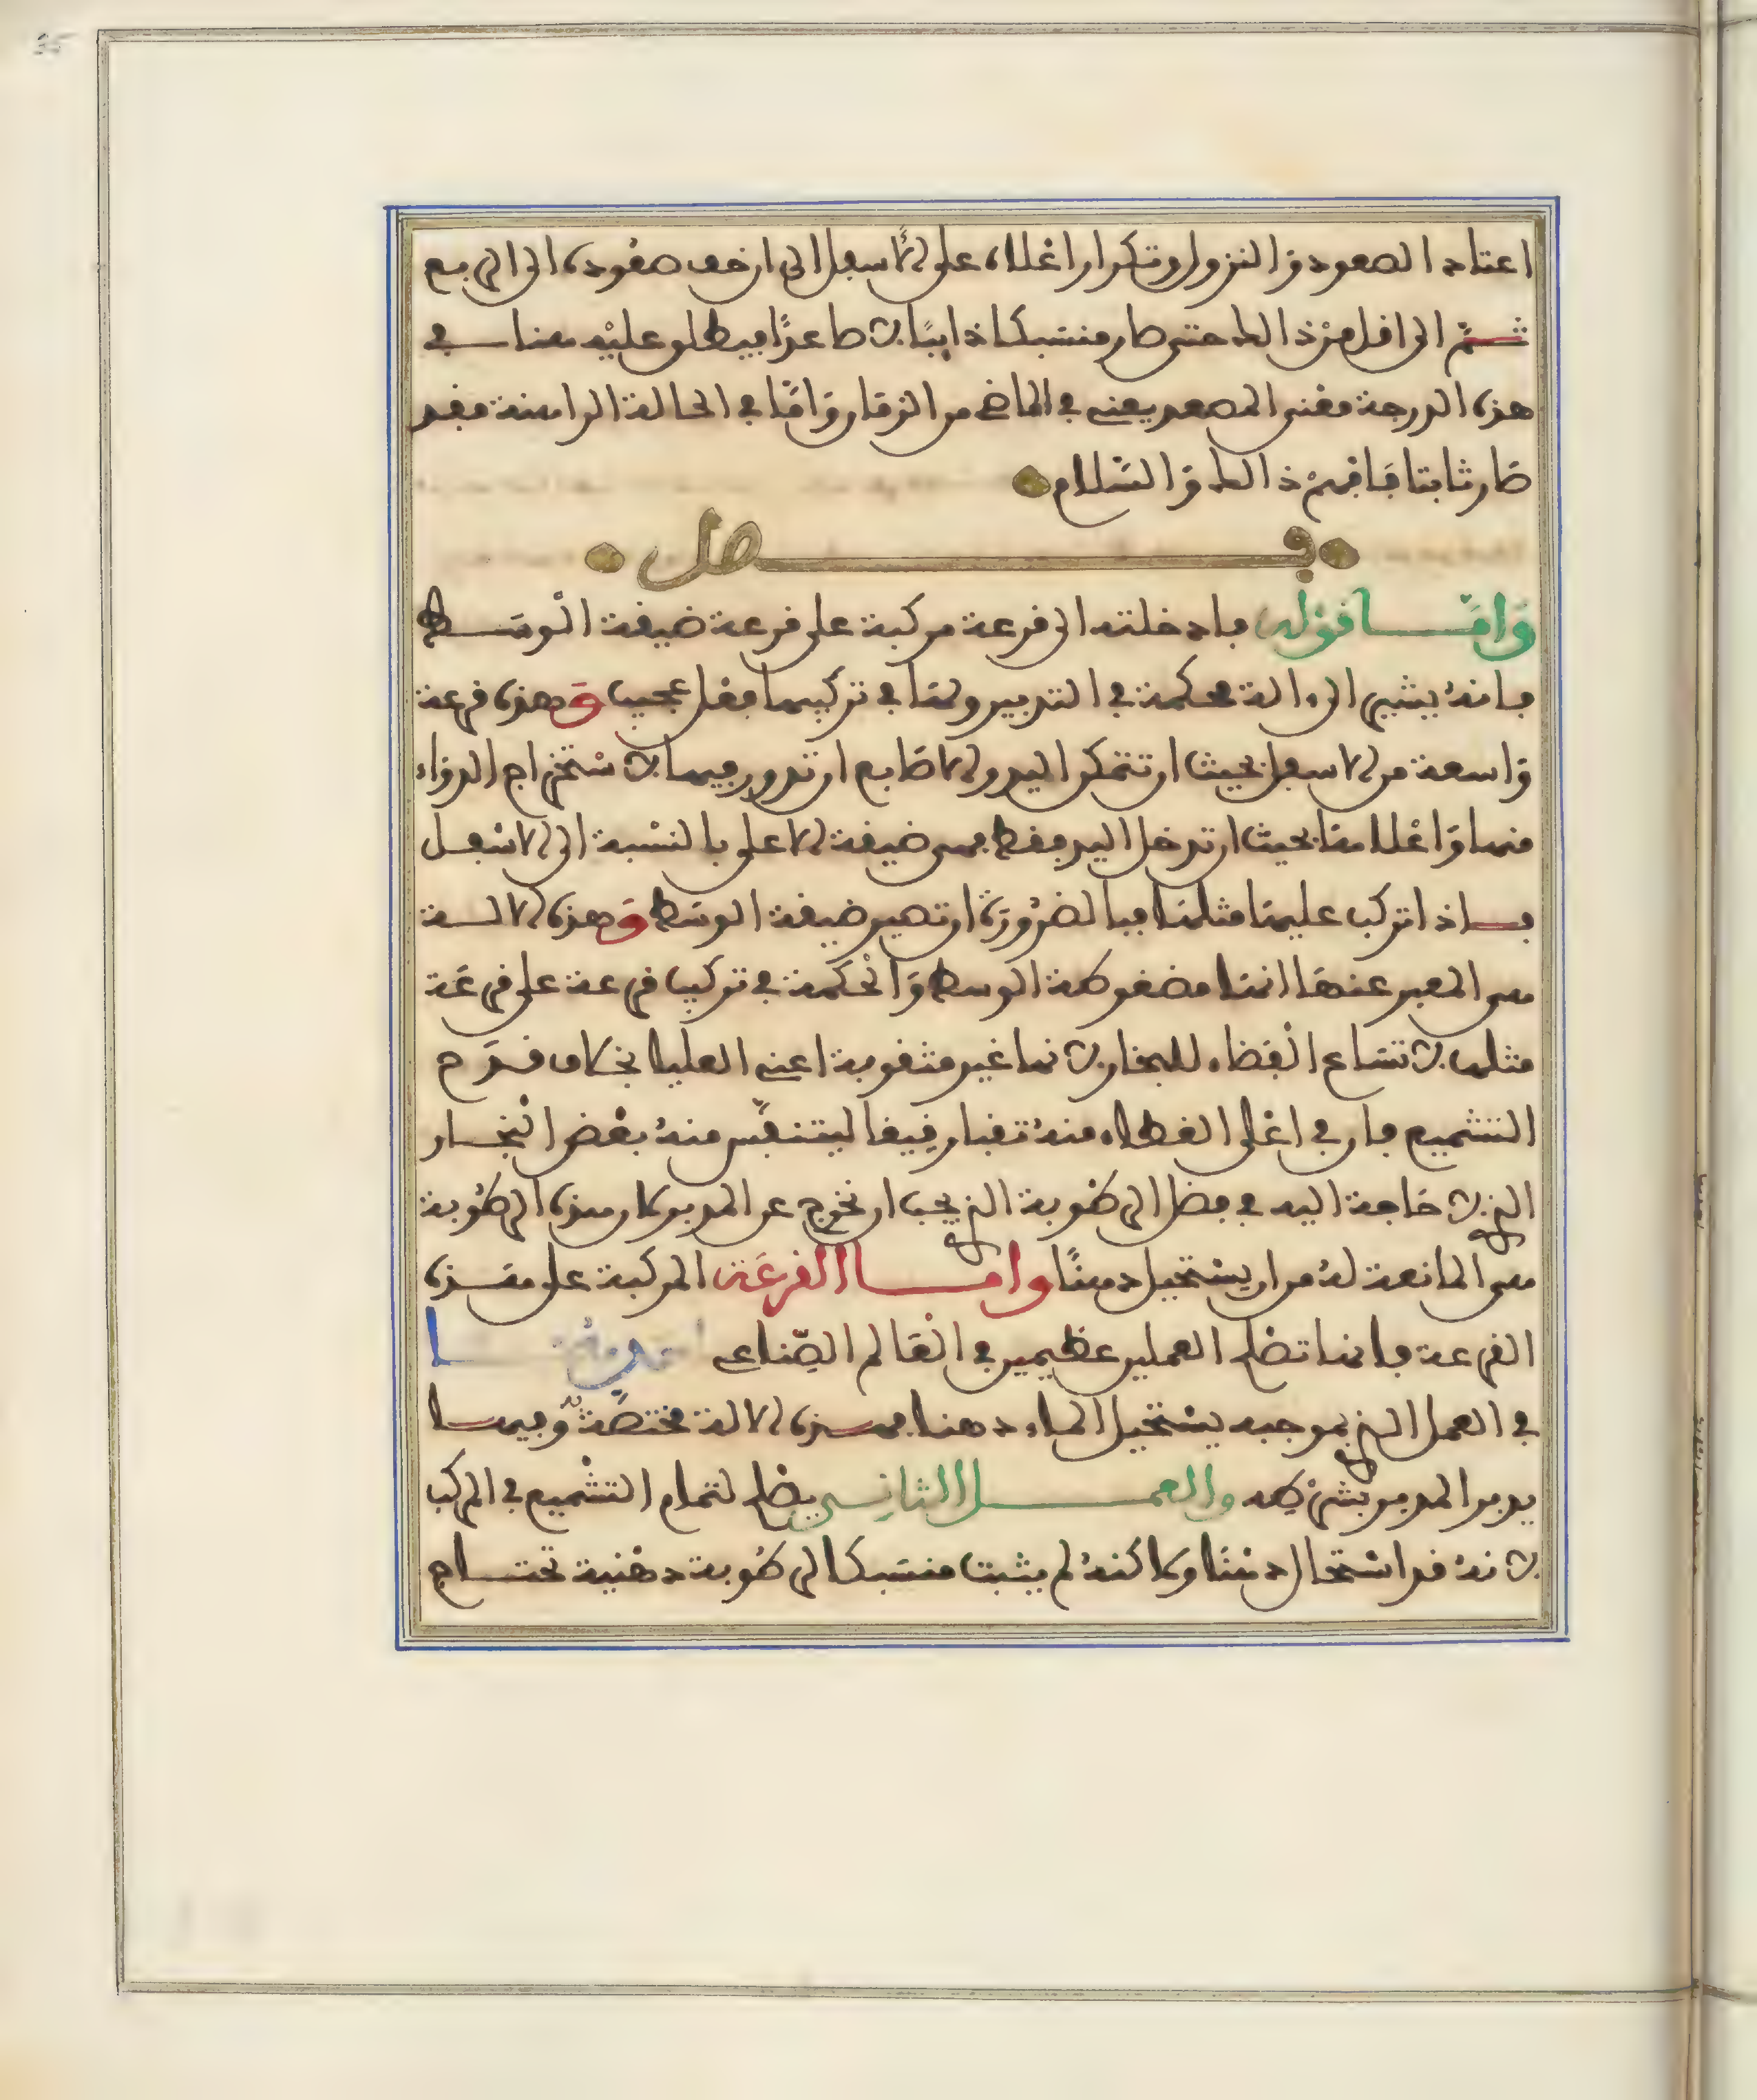 اعتاد الصعود والنزول وتكرار اغلاه على الأسفل الى ان خف صعوده الى الربع
ثم الى اقل من ذالك حتى صار منسبكا ذايبًا لا صاعدًا فيطلق عليه هنا في
هذه الدرجة معنى المصعد يعني في الماضي من الزمان وَامّا في الحالة الراهنة فقد
صَار ثابتا فَافهمْ ذالك وَالسَّلام
فصل
وَامَّا قوله فادخلته الى قرعة مركبة على قرعة ضيقة الْوسَط
فانهُ يشير الى ءالة محكمة في التدبير ولها في تركيبها فعل عجيب وَهذه قرعة
وَاسعة من الاسفل بحيث ان تتمكن اليد والاصَابع ان تدور فيها لاستخراج الدوَاء
منها وَاعْلاها بحيث ان تدخل اليد فقط فهى ضيقة الاعلى بالنسْبة الى الاسْفل
فاذا تركب عليها مثلها فبالضرُورَة ان تصير ضيقة الوسَط وَهذه الالة
هى المعبر عنهَا انها مضغوطة الوسط وَالْحكمة في تركيب قرعة على قرعَة
مثلها لاتسَاع الْفضاء للبخار لانها غير مثقوبة اعني العليا بخلاف قدح
التشميع فان في اعْلى الغطاء منهُ ثقبا رقيقا ليتنفّس منهُ بعْض الْبخار
الذى لا حَاجة اليه في فضل الرطوبة الذى يجب ان تخرج عن المدبر لان هذه الرطُوبة
هى المانعة لهُ من ان يسْتحيل دهنًا وامّا القرعَة المركبة على هذه
القرعة فانها تصلح لعملين عظيمين في الْعَالم الصّناعى احدهما
في العمل الذى بموجبه يسْتحيل الماء دهنا فهذه الالة مختصّة به وفيها
يدبر المدبر بشرْطِه والعمل الثاني يصلح لتمام التشْميع في المركب
لانهُ قد اسْتحال دهْنًا ولاكنهُ لم يثبت منسَبكا الرطُوبة دهْنية تحتاج